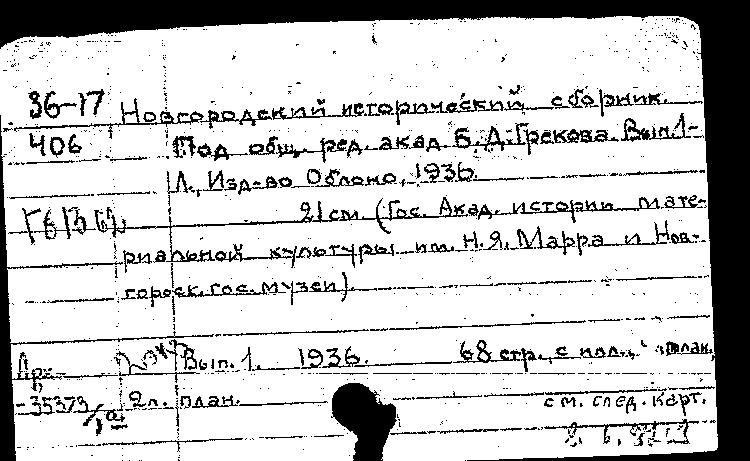 36-17 Новгородский исторический сборник.
406 Под общ. ред. акад. Б.Д. Грекова. Вып. 1-
Л., Изд-во Облоно, 1936.
21 см. (Гос. Акад. истории мате-
риальной культуры им. Н.Я. Марра и Нов-
городск. гос. музей).
Вып. 1. 1936. 68 стр., с илл., план.,
-35373/ 2 л. план. см. след. карт.